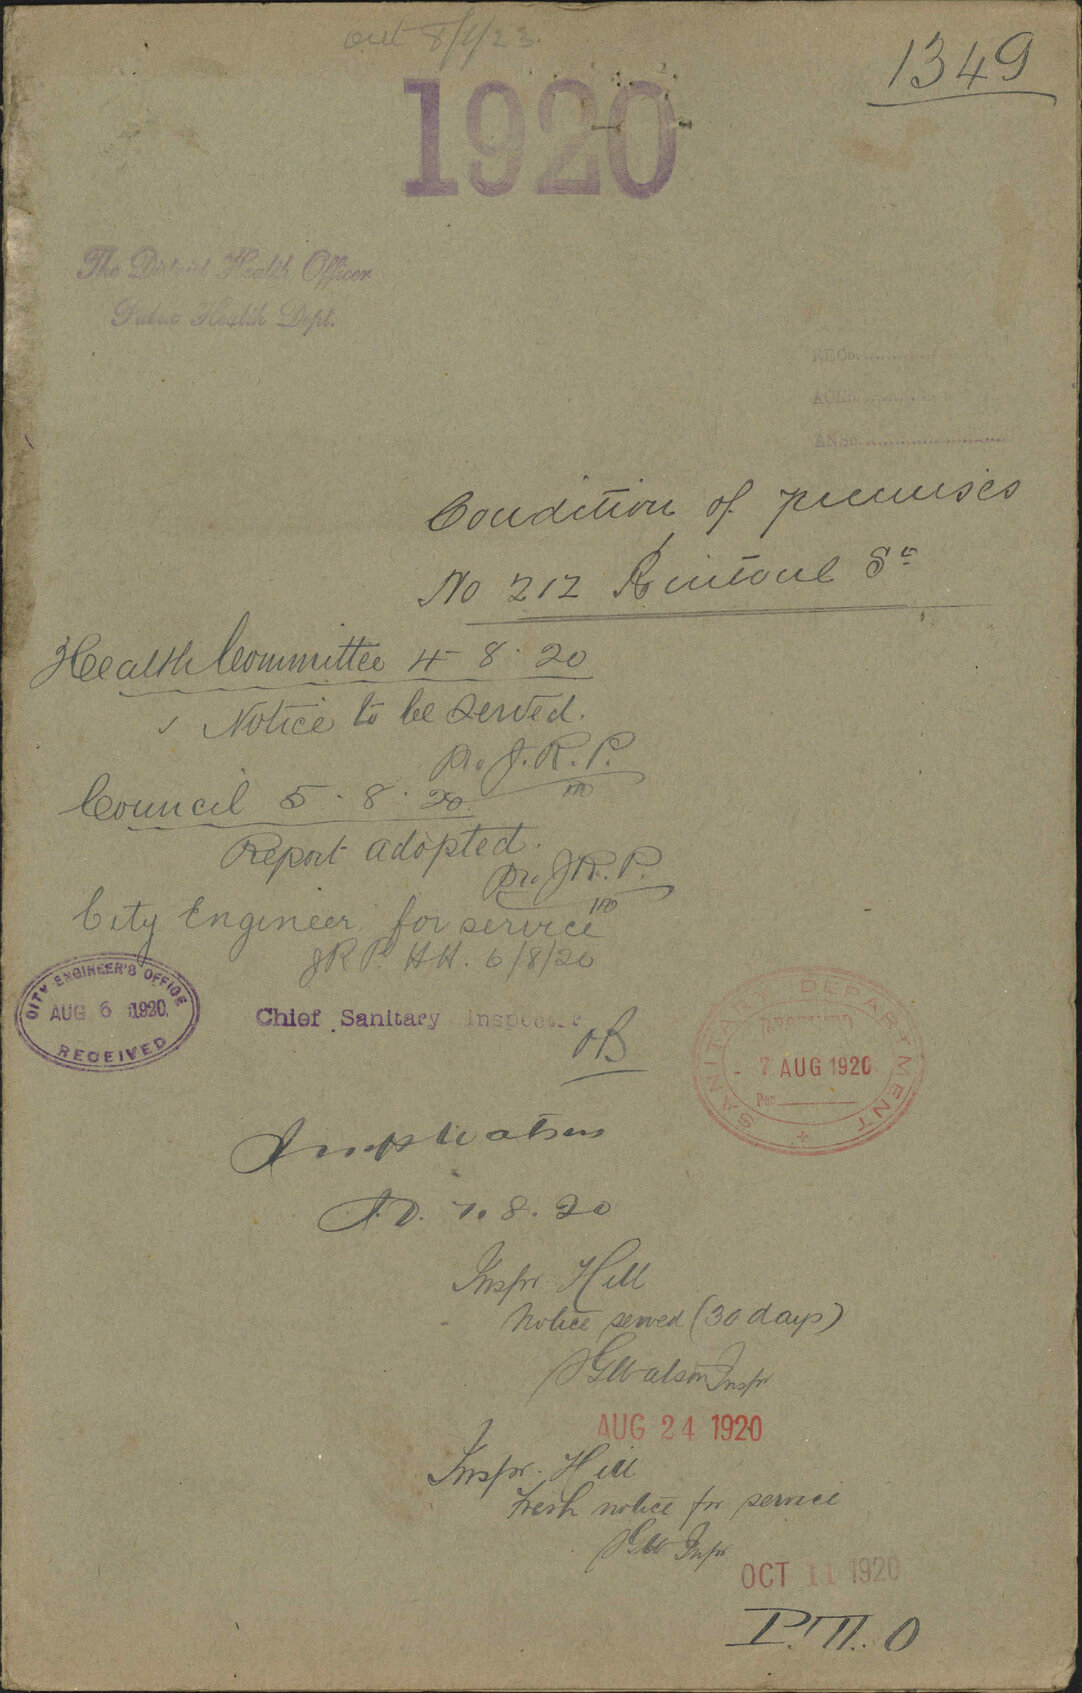 out 8/1/23
1349
1920
The District Health Officer
Public Health Dept.
REC
ACK
ANS
Condition of premises
No 212 Rintoul St
Health Committee 4 8 20
Notice to be served.
J.R.P.
Council 5.8.20.
Report adopted.
J.R.P.
City Engineer for service
JRP. HH. 6/8/20
CITY ENGINEER'S OFFICE
AUG 6 1920
RECEIVED
Chief Sanitary Inspector
SANITARY DEPARTMENT
7 AUG 1920
Per
Watson
7.8.20
Inspr Hill
Notice served (30 days)
GWatson Inspr
AUG 24 1920
Inspr. Hill
Fresh notice for service
GW Inspr
OCT 11 1920
P.T.O